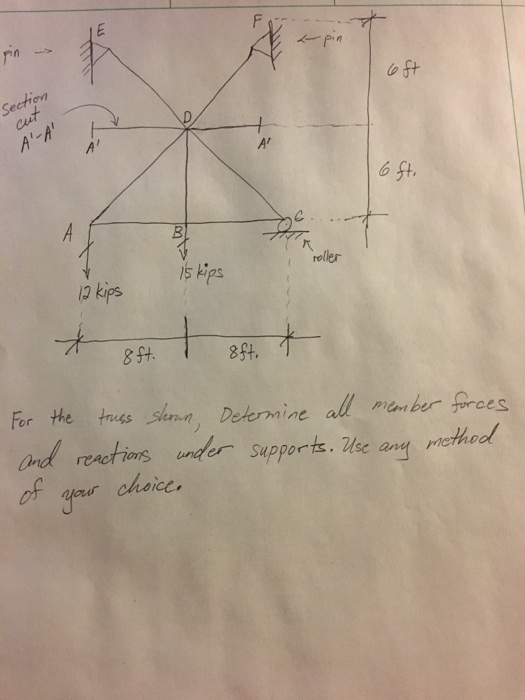 E
F
pin →
← pin
6 ft
Section
cut
A'-A'
D
A'
A'
6 ft.
A
B
C
roller
12 kips
15 kips
8 ft.
8 ft.
For the truss shown, Determine all member forces
and reactions under supports. Use any method
of your choice.